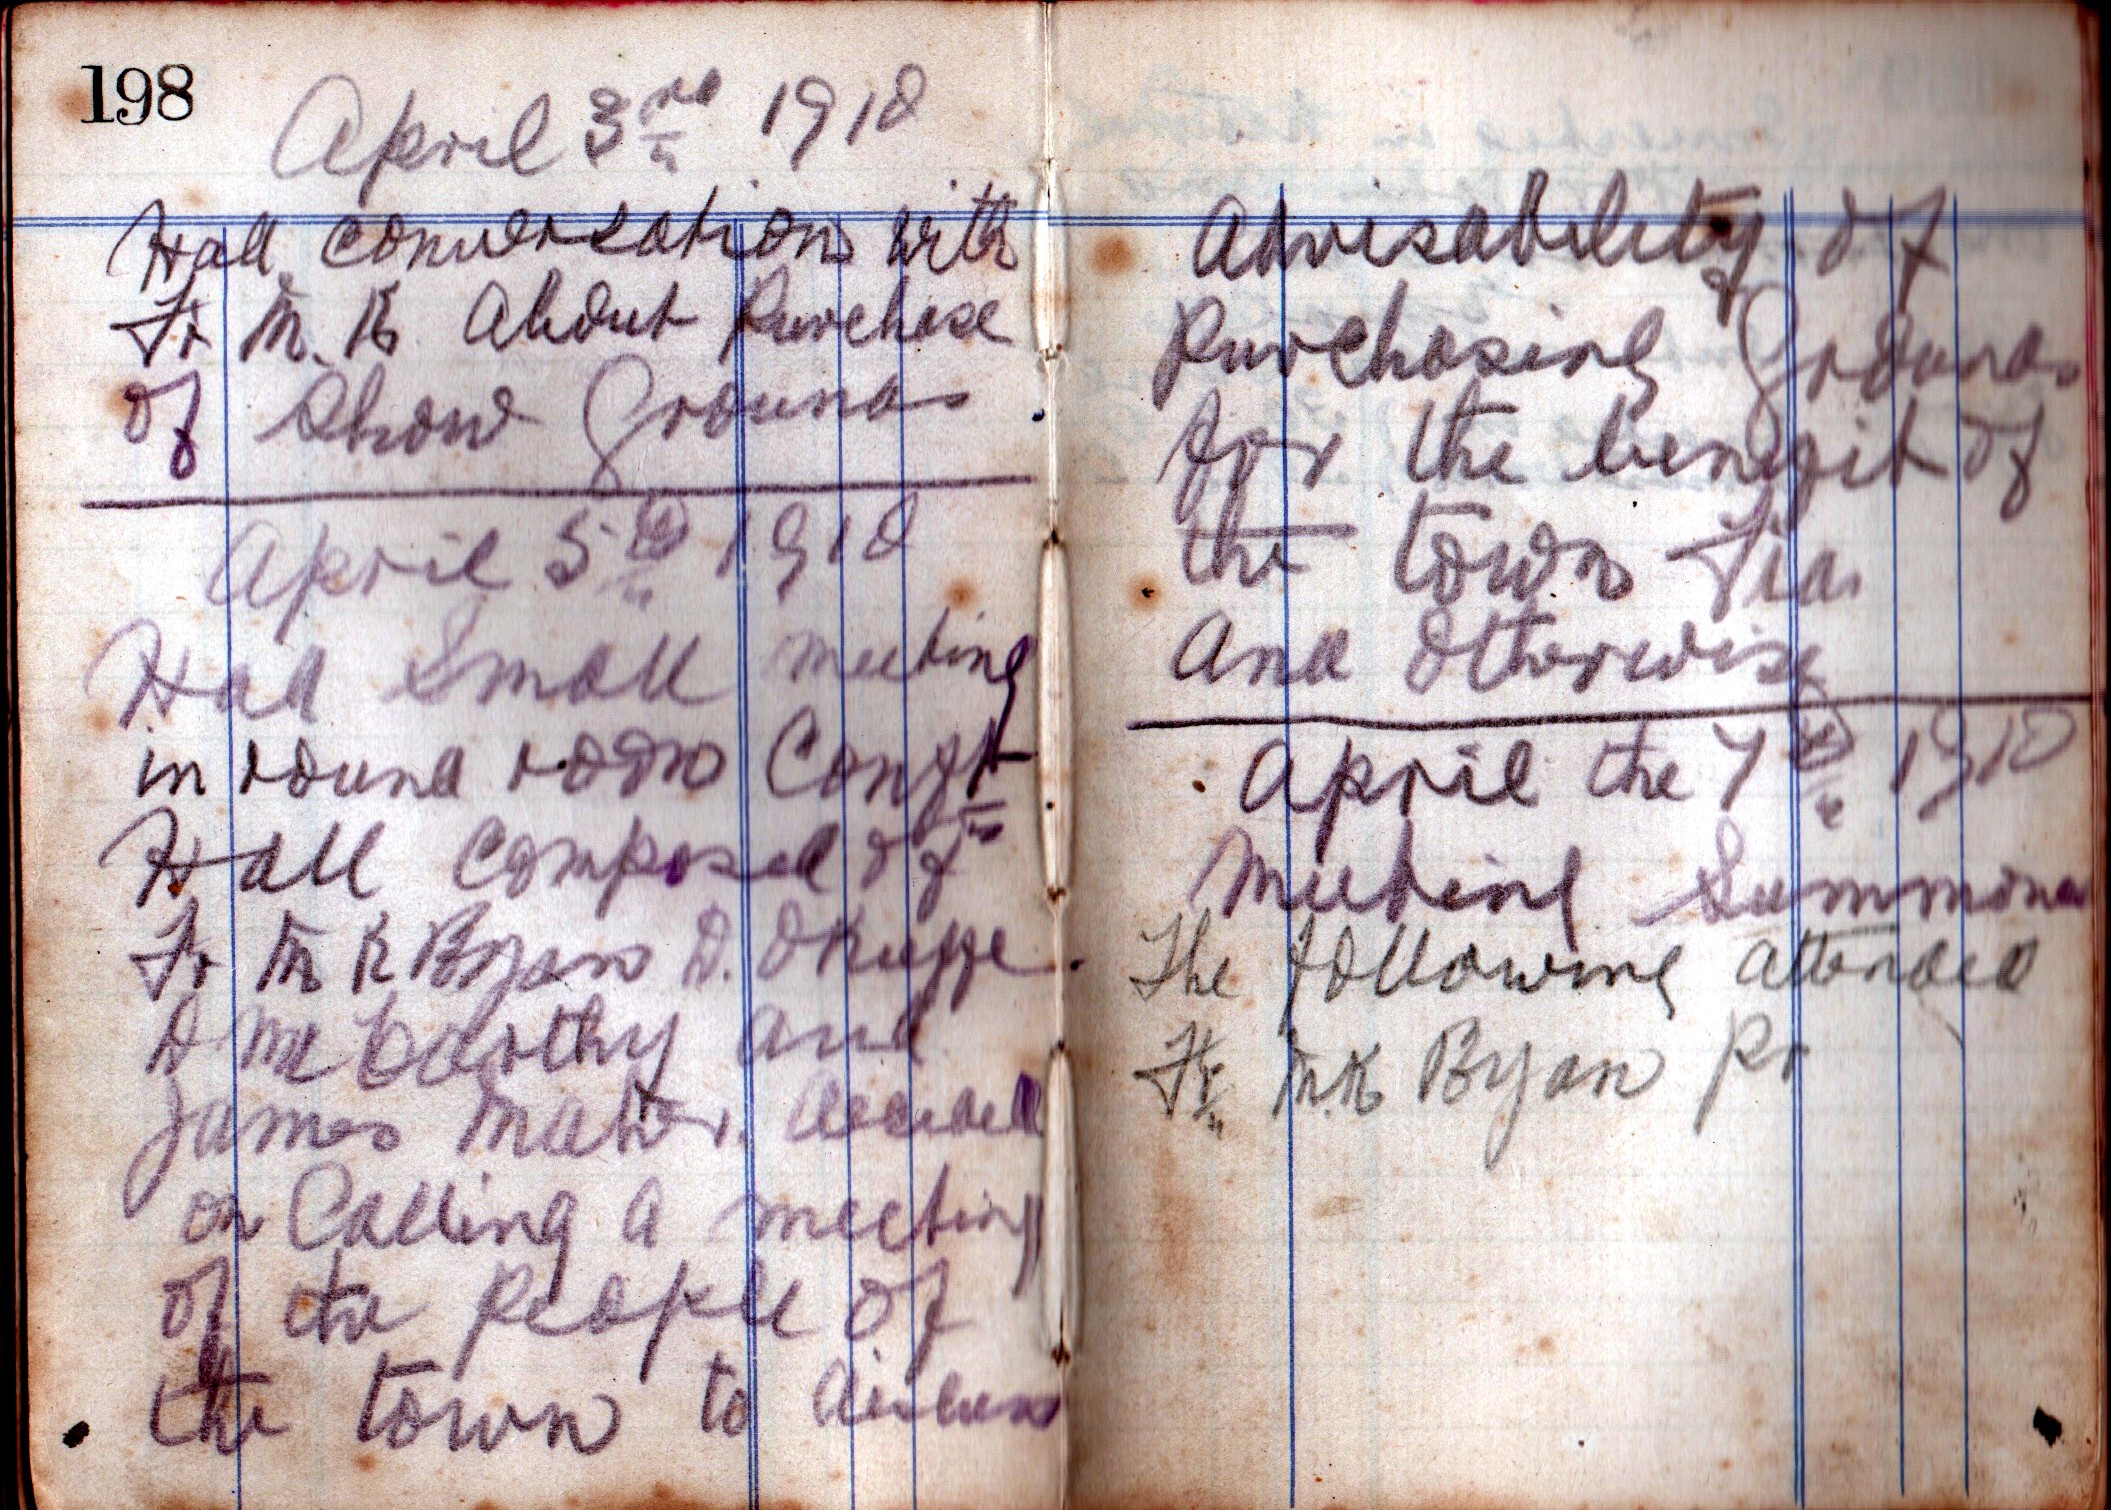 198
April 3rd 1910
Had conversation with
Fr M. K. About Purchase
of Show Grounds
April 5th 1910
Had Small meeting
in round room Confr
Hall composed of
Fr M K Ryan D. OKeffe.
D McCarthy and
James Maher. decided
on Calling a meeting
of the People of
the town to discuss
advisability of
Purchasing Grounds
for the benefit of
the town Fair
and Otherwise
April the 7th 1910
Meeting Summoned
The following attended
Fr M.K Ryan Pr